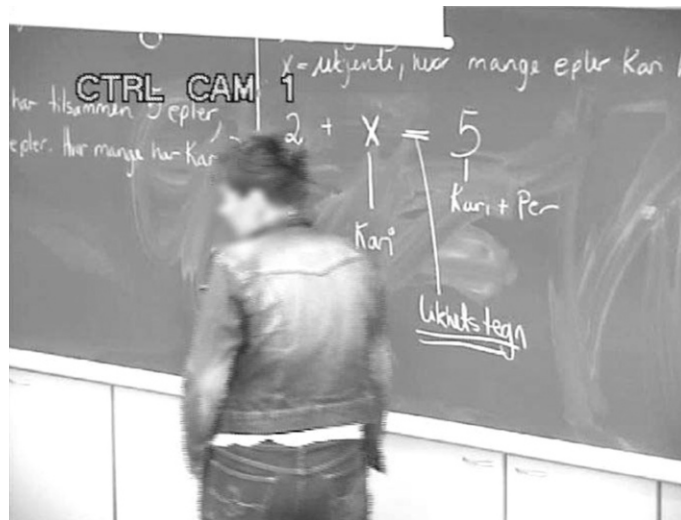 CTRL CAM 1
har tilsammen 5 epler
epler. Hvor mange har Kari
x = ukjente, hvor mange epler Kari
2 + x = 5
Kari
Kari + Per
likhetstegn